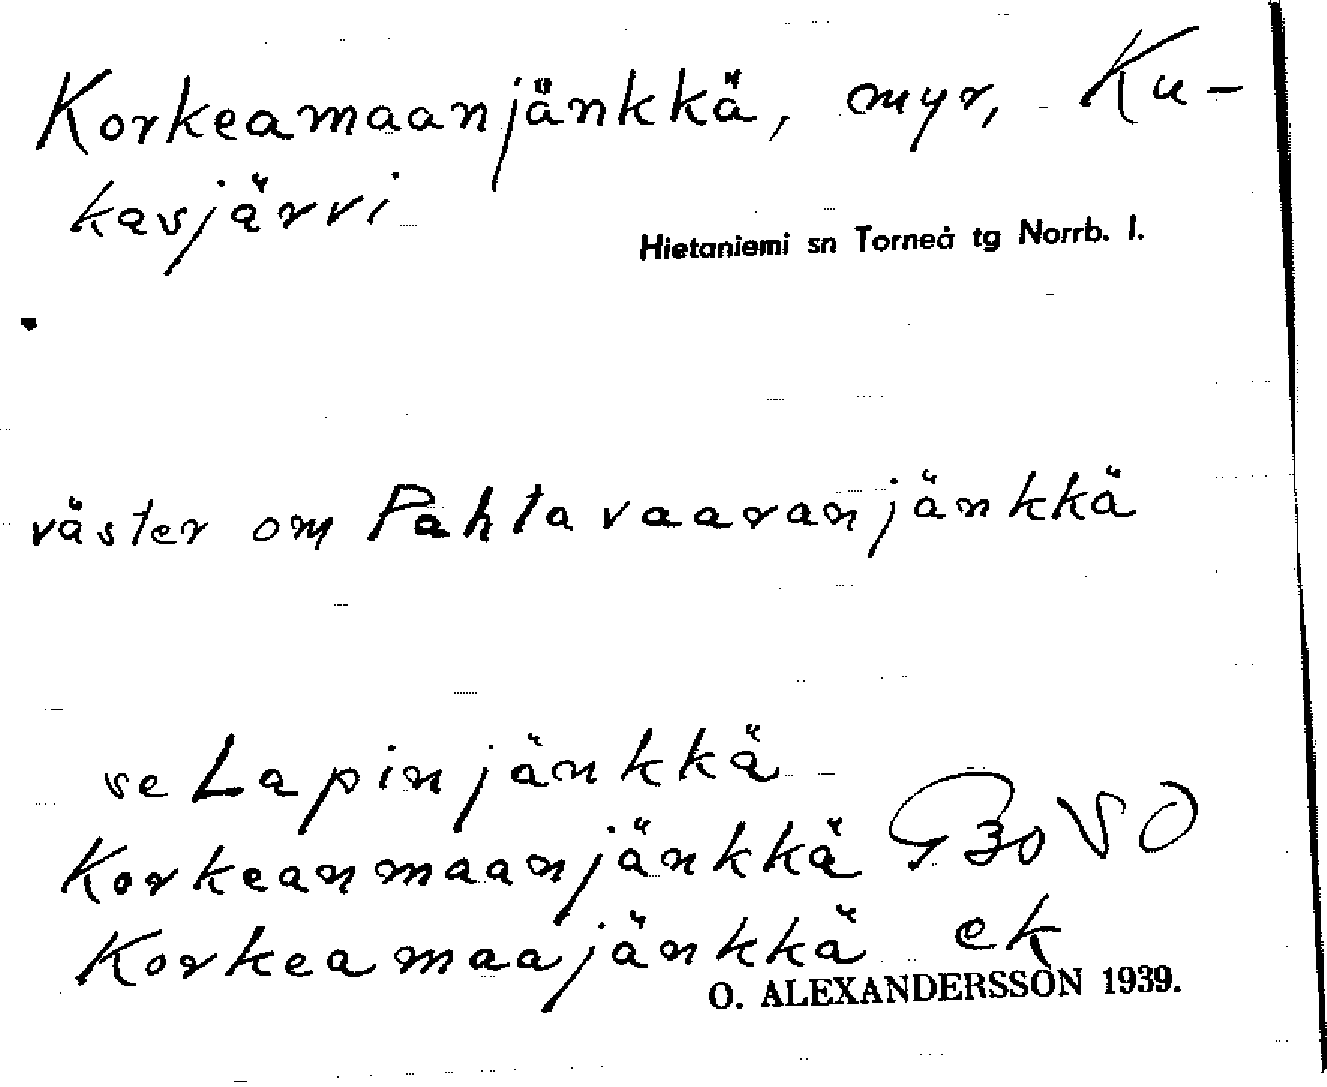 Korkeamaanjänkkä, myr, Ku-
kasjärvi
Hietaniemi sn Torneå tg Norrb. l.
väster om Pahtavaaranjänkkä
se Lapinjänkkä
Korkeanmaanjänkkä G30 VSO
Korkeamaajänkkä ek
O. ALEXANDERSSON 1939.